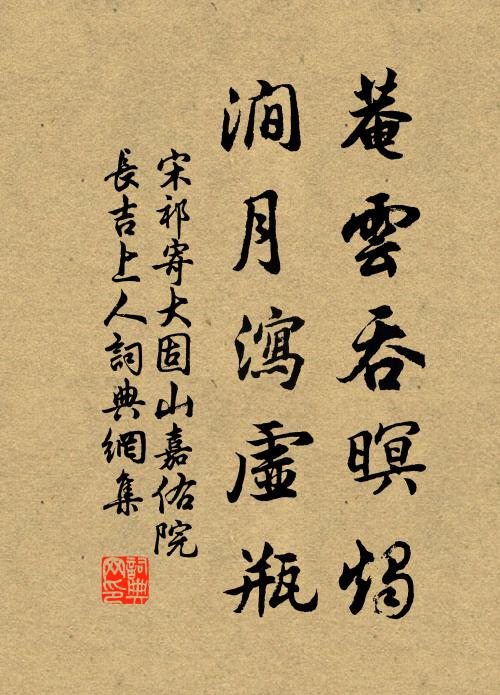 菴雲吞暝燭
澗月瀉虛瓶
宋祁寄大固山嘉佑院
長吉上人詞典網集
詞典網印